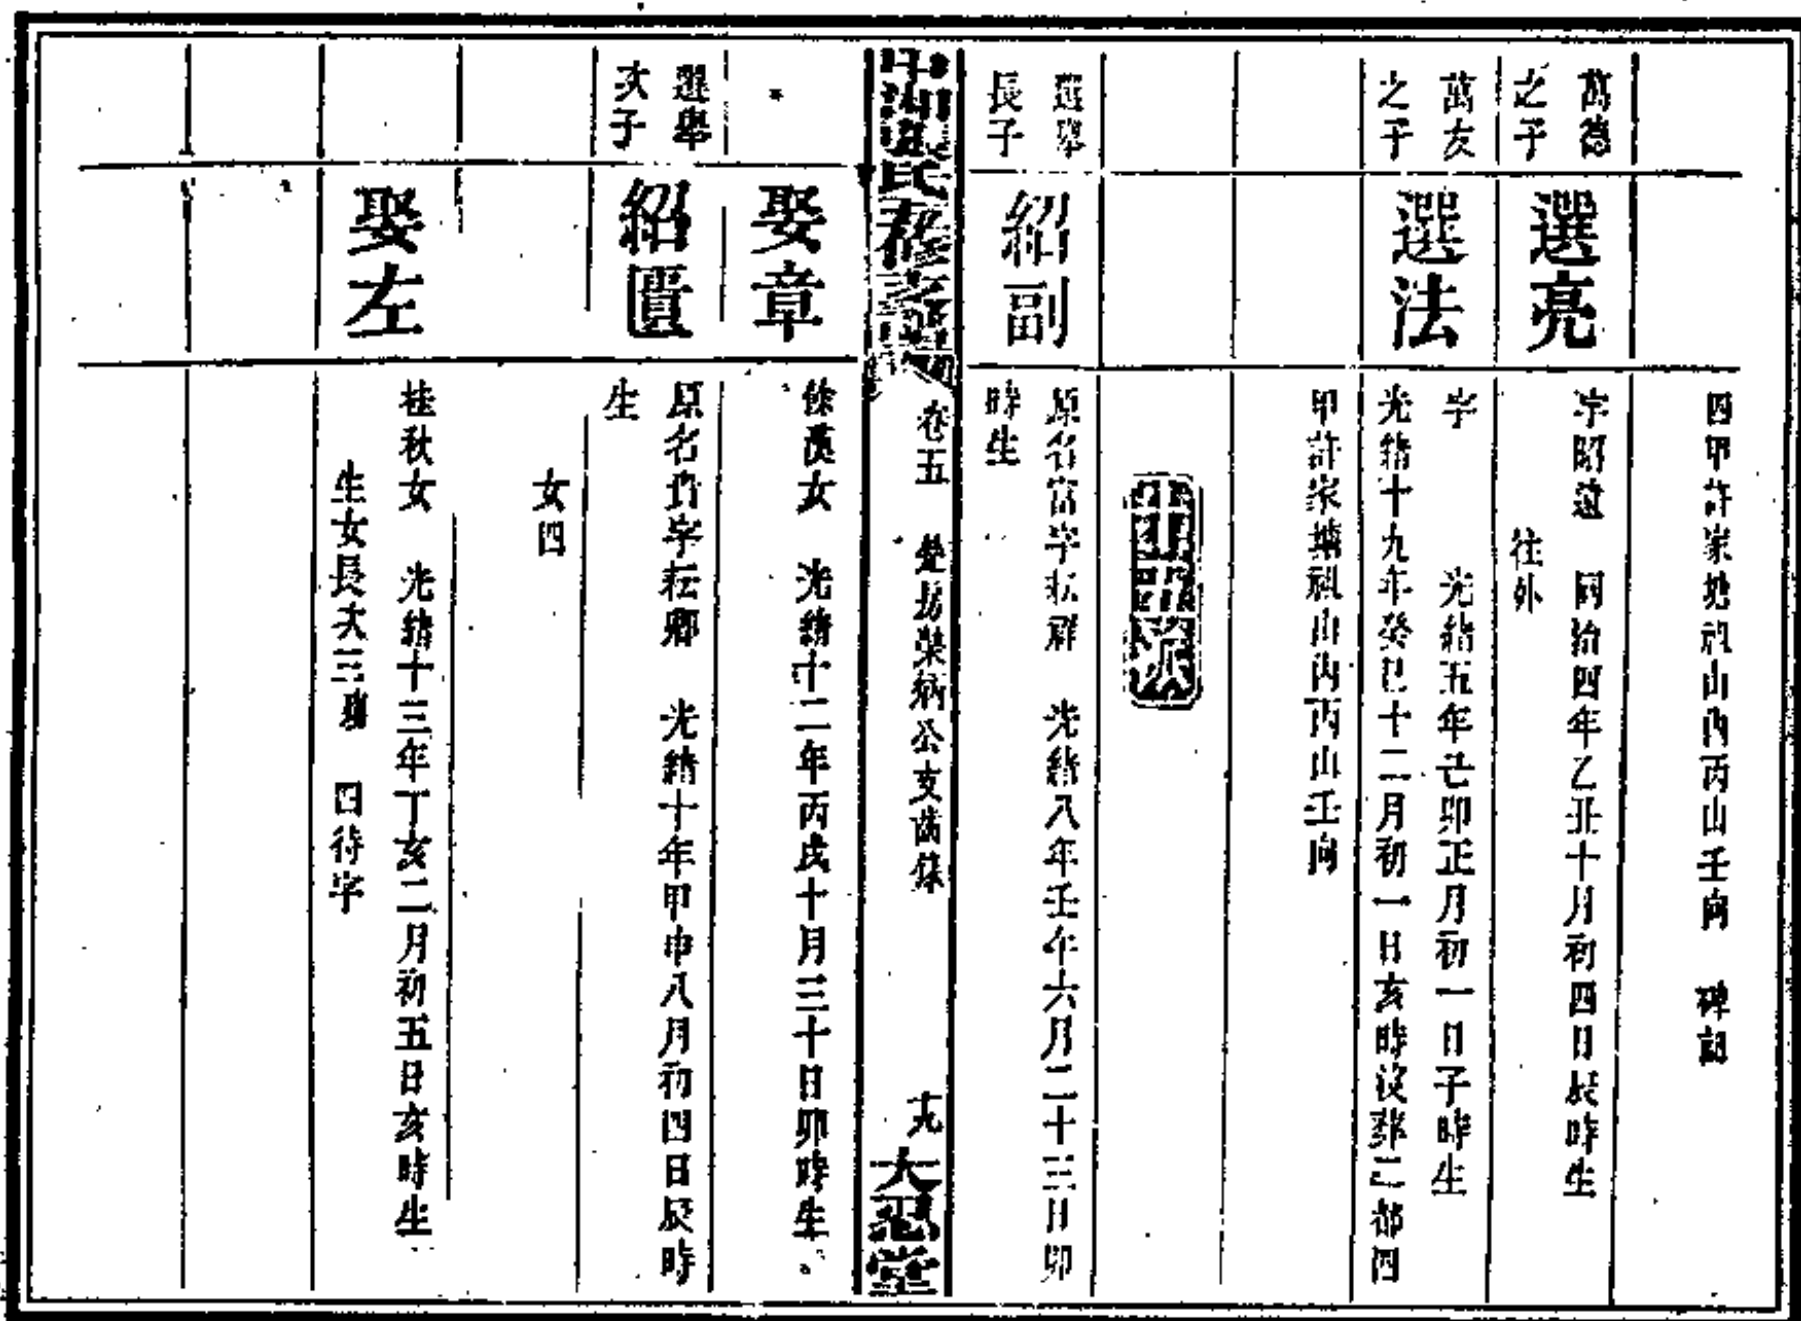 四甲許家塘祖山內丙山壬向 碑記
萬德
之子
選亮
字昭 同治四年乙丑十月初四日辰時生
往外
萬友
之子
選法
字 光緒五年己卯正月初一日子時生
光緒十九年癸巳十二月初一日亥時歿葬 都四
甲許家塘祖山內丙山壬向
選舉
長子
紹副
原名富字耘 光緒八年壬午六月二十三日卯
時生
卷五
公支齒錄
十九
大忍堂
娶章
餘漢女 光緒十二年丙戌十月三十日卯時生
選舉
次子
紹匱
原名貴字耘鄉 光緒十年甲申八月初四日辰時
生
女四
娶左
桂秋女 光緒十三年丁亥二月初五日亥時生
生女長次三殤 四待字